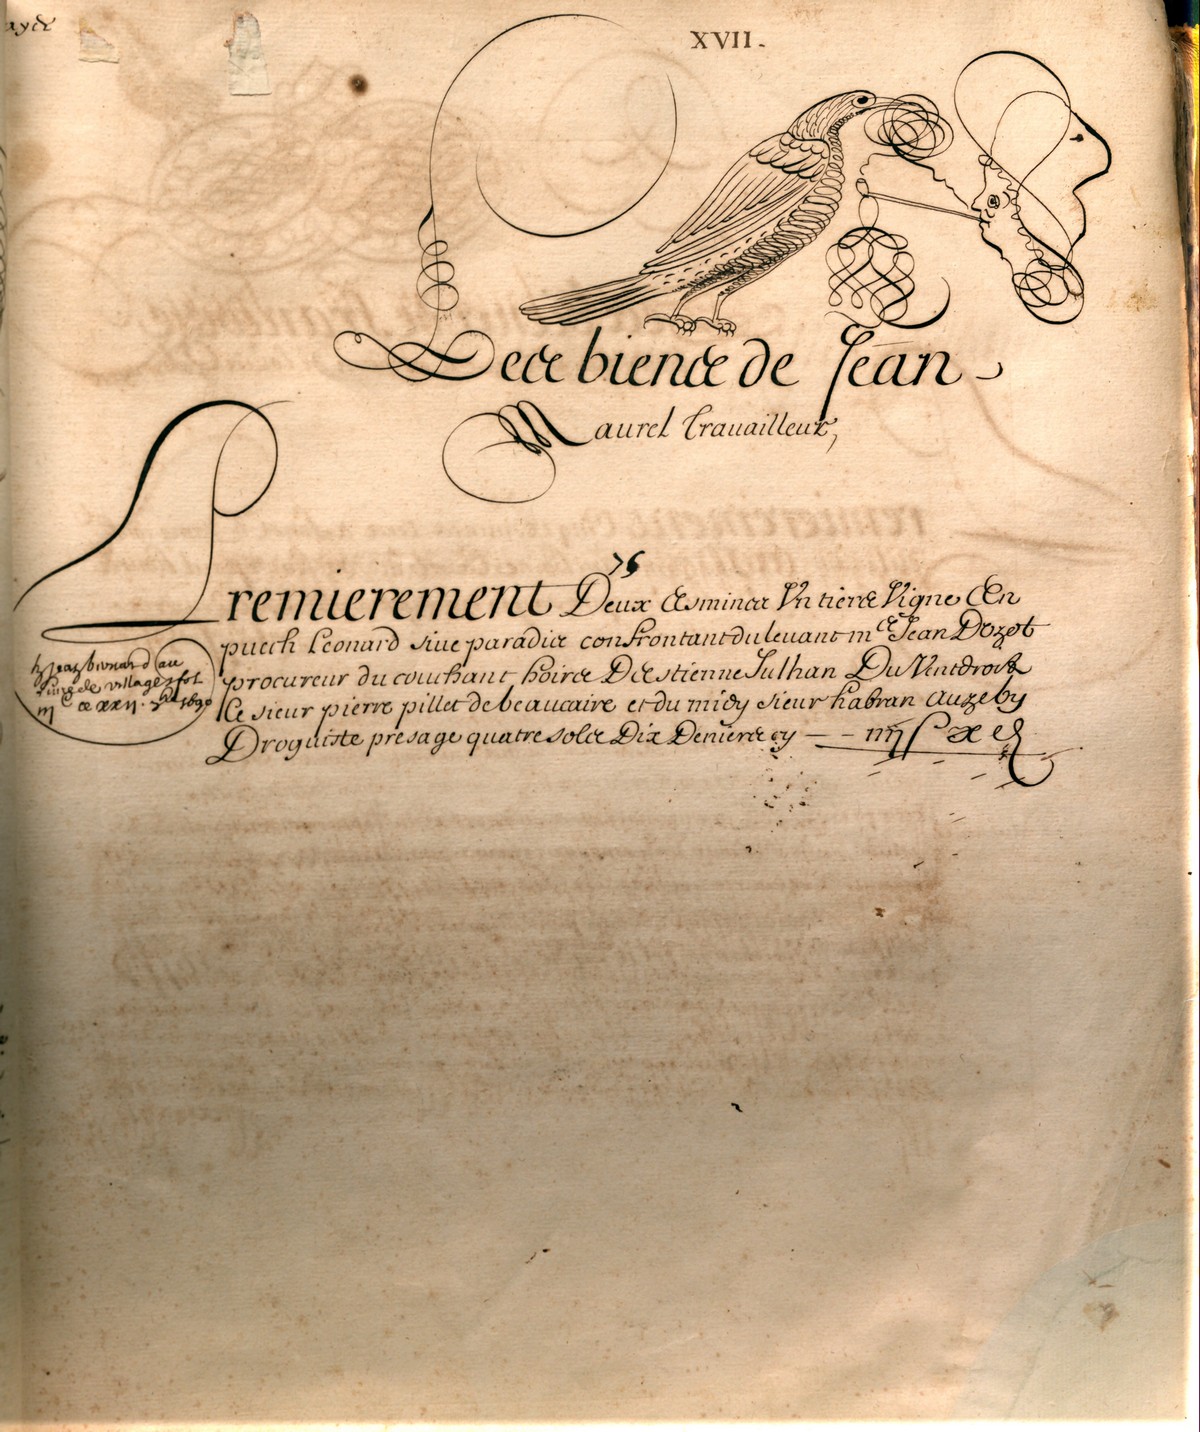 ayde
XVII.
Des biens de Jean
Maurel travailleur,
75
Premierement Deux Esmines Un tiers Vigne En
puech Leonard sive paradis confrontant du levant me Jean Dozot
procureur du couchant hoirs D'estienne Julhan Du Vent droit
Le sieur pierre pillet de beaucaire et du midy sieur habran auzeby
Droguiste presage quatre sols Dix Deniers cy — - iiii s x d
h jean bernard au
livre de villages fol
m c xxii. 1690